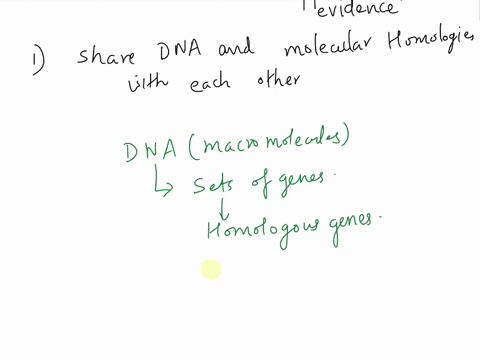 evidence
1) Share DNA and molecular Homologies
with each other
DNA (macromolecules)
↳ Sets of genes.
↓
Homologous genes.